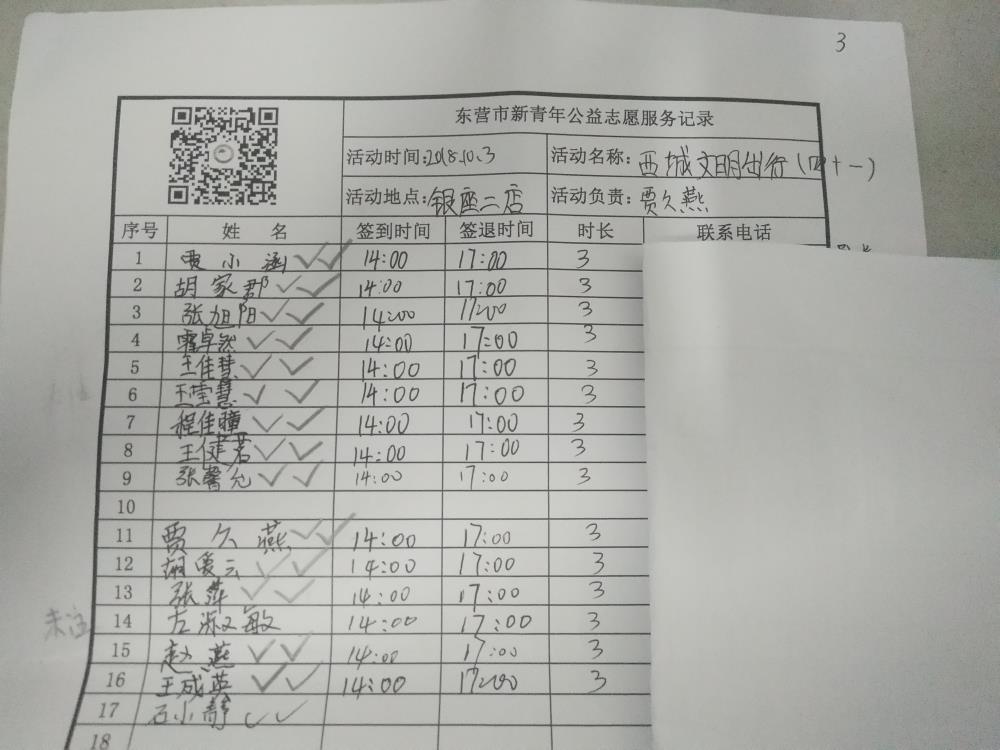 3
东营市新青年公益志愿服务记录
活动时间:2018.10.3 活动名称: 西城文明出行(四十一)
活动地点: 银座二店 活动负责: 贾久燕
序号 姓 名 签到时间 签退时间 时长 联系电话
1 贾小涵 14:00 17:00 3
2 胡家郡 14:00 17:00 3
3 张旭阳 14:00 17:00 3
4 霍卓然 14:00 17:00 3
5 王佳慧 14:00 17:00 3
6 王雪慧 14:00 17:00 3
7 程佳瞳 14:00 17:00 3
8 王健若 14:00 17:00 3
9 张馨允 14:00 17:00 3
10
11 贾久燕 14:00 17:00 3
12 胡爱云 14:00 17:00 3
13 张萍 14:00 17:00 3
未注 14 左淑敏 14:00 17:00 3
15 赵燕 14:00 17:00 3
16 王成英 14:00 17:00 3
17 石小静
18